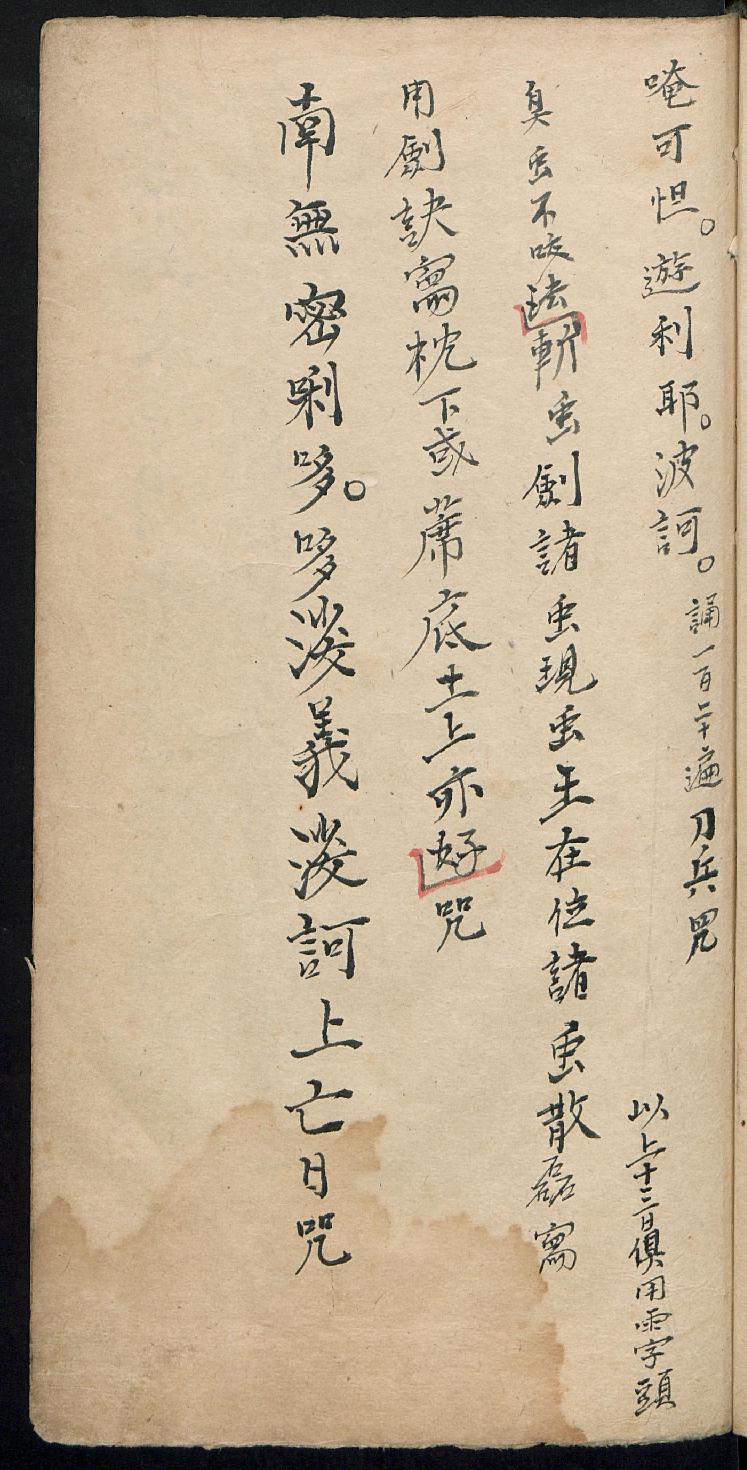 唵可怛。遊利耶。波訶。誦一百二十遍刀兵咒
以上十三日俱用雨字頭
臭虫不咬法斬虫劍諸虫現虫王在位諸虫散磊寫
用劍訣寫枕下或蓆底土上亦好咒
南無密唎哆。哆淡義淡訶上亡日咒